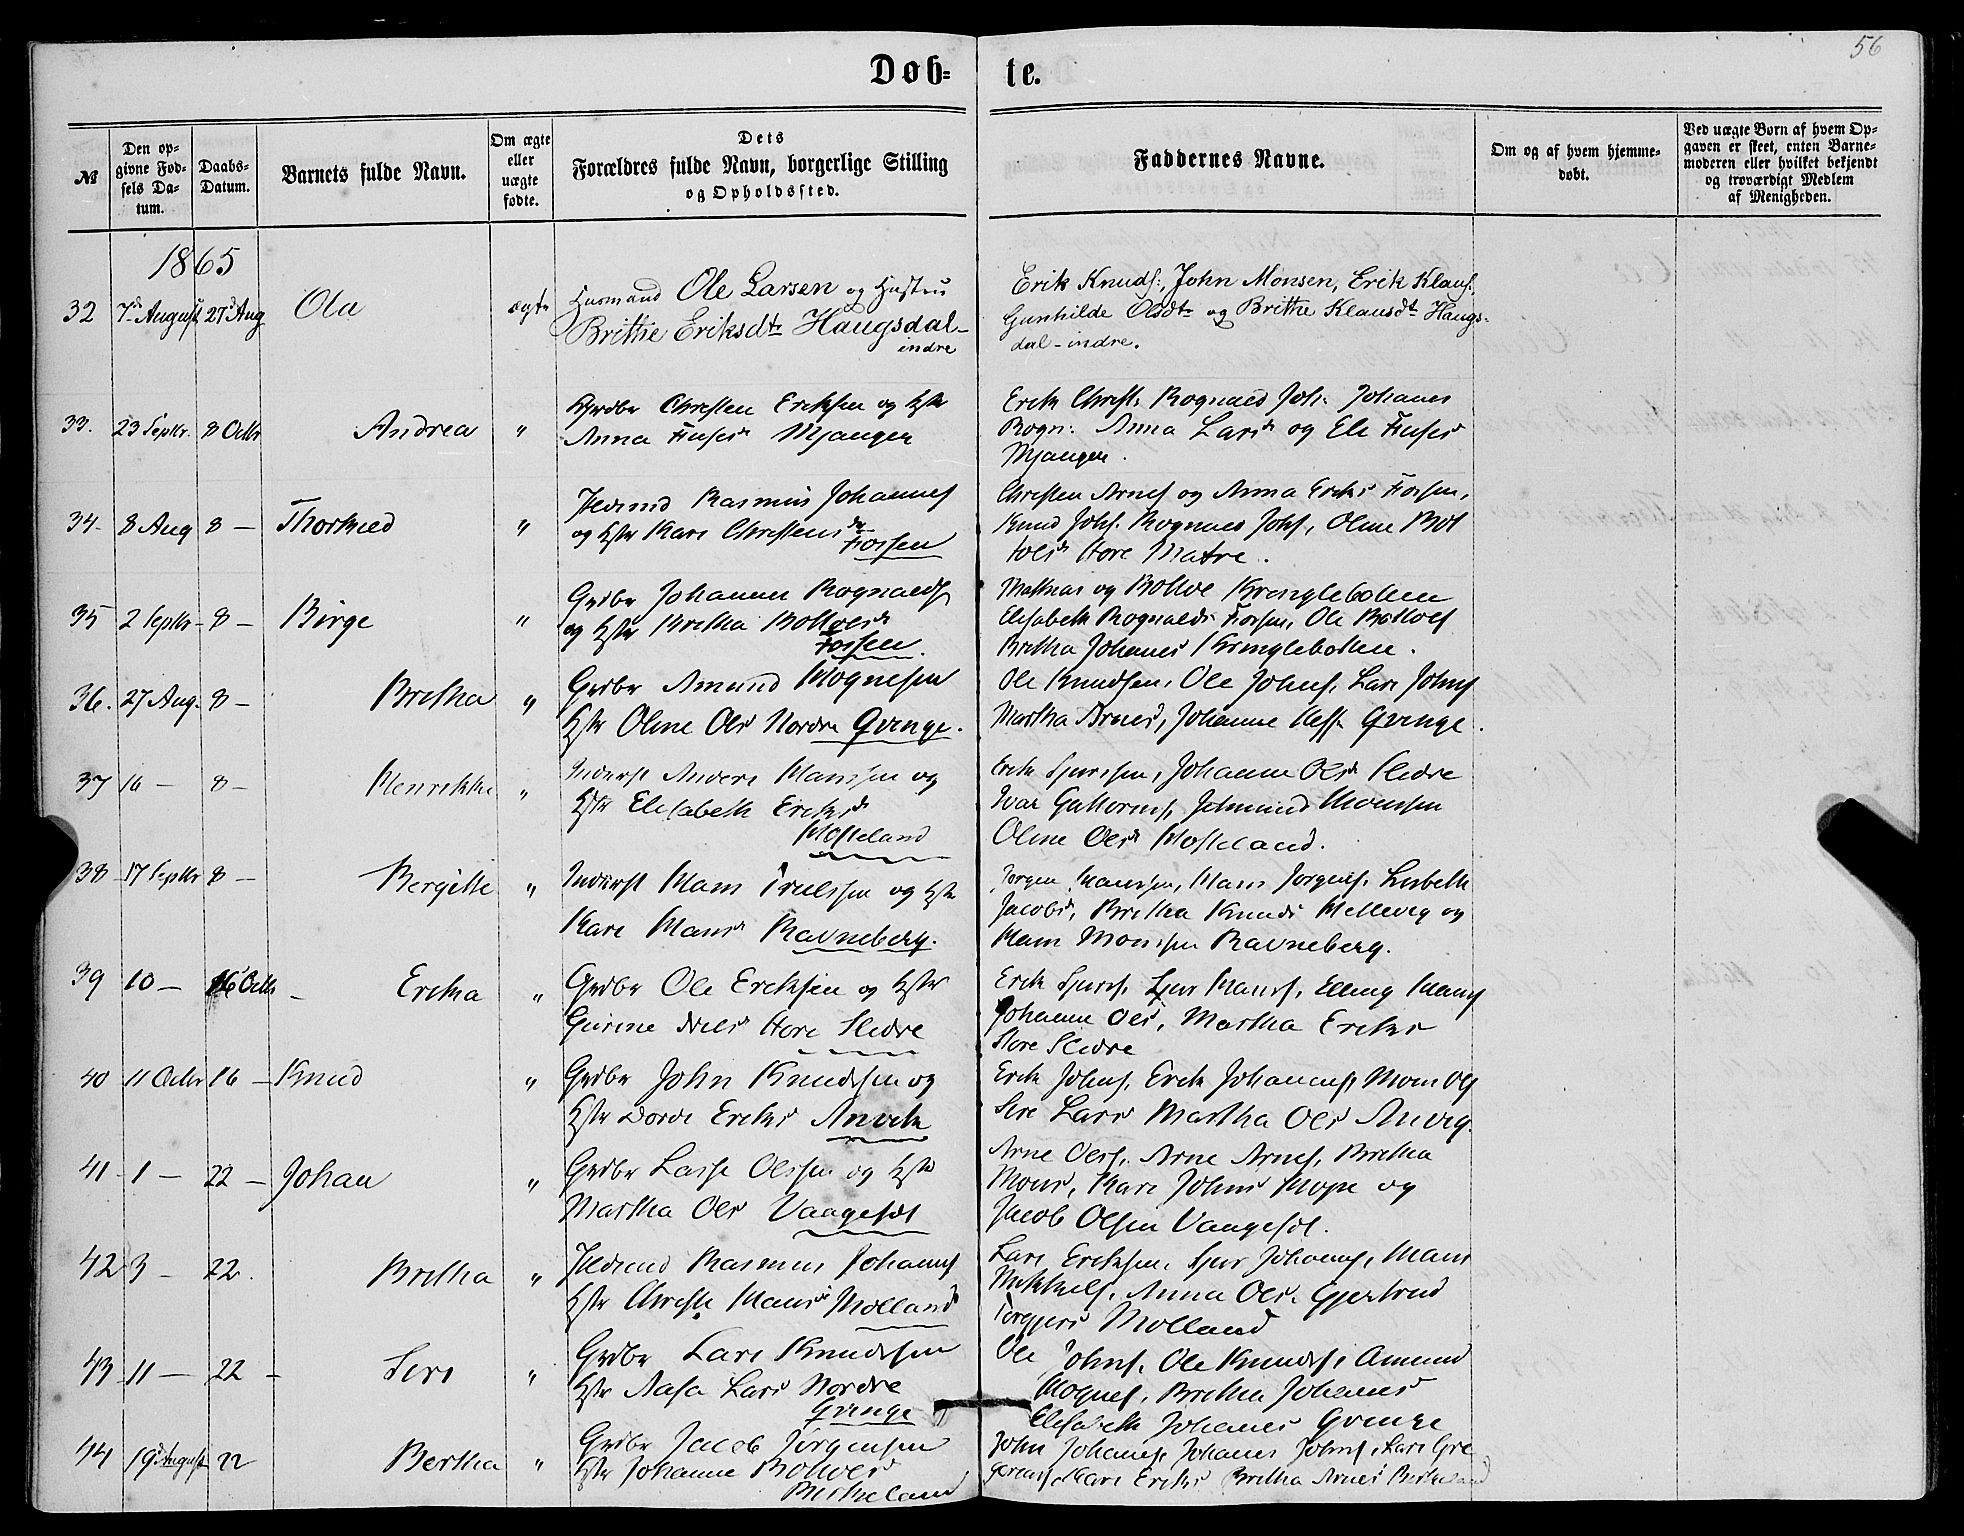 56
Døb-
te.
№
Den op-
givne Fød-
sels Da-
tum.
Daabs-
Datum.
Barnets fulde Navn.
Om ægte
eller
uægte
fødte.
Dets
Forældres fulde Navn, borgerlige Stilling
og Opholdssted.
Faddernes Navne.
Om og af hvem hjemme-
døbt.
Ved uægte Børn af hvem Op-
gaven er skeet, enten Barne-
moderen eller hvilket bekjendt
og troværdigt Medlem
af Menigheden.
1865
32 7de August 27de Aug Ola ægte Husmand Ole Larsen og Hustru
Brithe Eriksdtr Haugsdal-
indre
Erik Knuds:, John Monsen, Erik Klaus:,
Gunhilde Olsdtr og Brithe Klausdtr Haugs-
dal-indre.
33. 23 Septbr. 8 Octbr Andrea " Grdbr Christen Eriksen og Hstr
Anna Mjanger
Erik Christ: Rognald Joh: Johanes
Rogn: Anna Larsd og Eli
Mjanger.
34. 8 Aug 8 - Thorkild " Rasmus Johannes
og Hstr Kari Christensdr
Fossen
Christen Arnes og Anna Eriks Fossen,
Knud Johs. Rognald Johs, Oline Bot
tolsd Store Matre.
35 2 Septbr - 8 - Børge " Grdbr Johannes Rognalds
og Hstr Bretha Bottolsd
Fossen.
Mathias og Bottol Kringlebotten
Elisabeth Rognalds Fossen, Ole Bottols
Bretha Johanes Kringlebotten.
36. 27 Aug. 8 - Bretha " Grdbr Amund Mognesen
Hstr Oline Ols Nordre Qvinge.
Ole Knudsen, Ole Johns, Lars Johns
Martha Arnes, Johanne Qvinge.
37 16 - 8 - Henrikke " Inderst Anders Hansen og
Hstr Elisabeth Eriksd
Hosteland
Erik Sjursen, Johanne Olsd Sleire
Ivar Guttorms, Monsen
Oline Olsd Hosteland.
38 17 Septbr 8 - Bergitte " Inderst Hans og Hstr
Kari Hansd Ravneberg.
Jørgen Hanssen, Hans Jørgens, Lisbeth
Jacobsd, Bretha Knuds Mellevig og
Monssen Ravneberg.
39 10 - 16 Octbr - Erika " Grdbr Ole Eriksen og Hstr
Gurine Nielsd Store Sleire
Erik Sjurs, Sjur Hans, Elling Hans
Johanne Ols, Martha Eriks
Store Sleire
40 11 Octbr 16 - Knud " Grdbr John Knudsen og
Hstr Dorde Eriks Anvik
Erik Johns, Erik Johannes, Mons Ols
Siri Lars Martha Ols Anvig.
41 1 - 22 - Johan " Grdbr Lasse Olssen og Hstr
Martha Ols Vaagesøt
Arne Ols, Arne Arnes, Bretha
Mons, Kari Johns Hope og
Jacob Olsen Vaagesøt.
42 3 - 22. Bretha " Rasmus Johannes
Hstr Christi Hans Molland
Lars Eriksen, Sjur Johannes, Hans
Mikkels, Anna Ols. Gjertrud
Torgjers Molland
43 11 - 22 - Siri " Grdbr Lars Knudsen
Hstr Aasa Lars Nordre
Qvinge
Ole Johns, Ole Knuds, Amund
Mognes, Bretha Johanes
Elisabeth Johanes Qvinge
44 19 August 22 Bertha " Grdbr Jacob Jørgensen
Hstr Johanne Bottols
Birkeland
John Johannes, Johanes Johns, Lars Gre
gers, Kari Eriks Bretha Arnes Birkeland